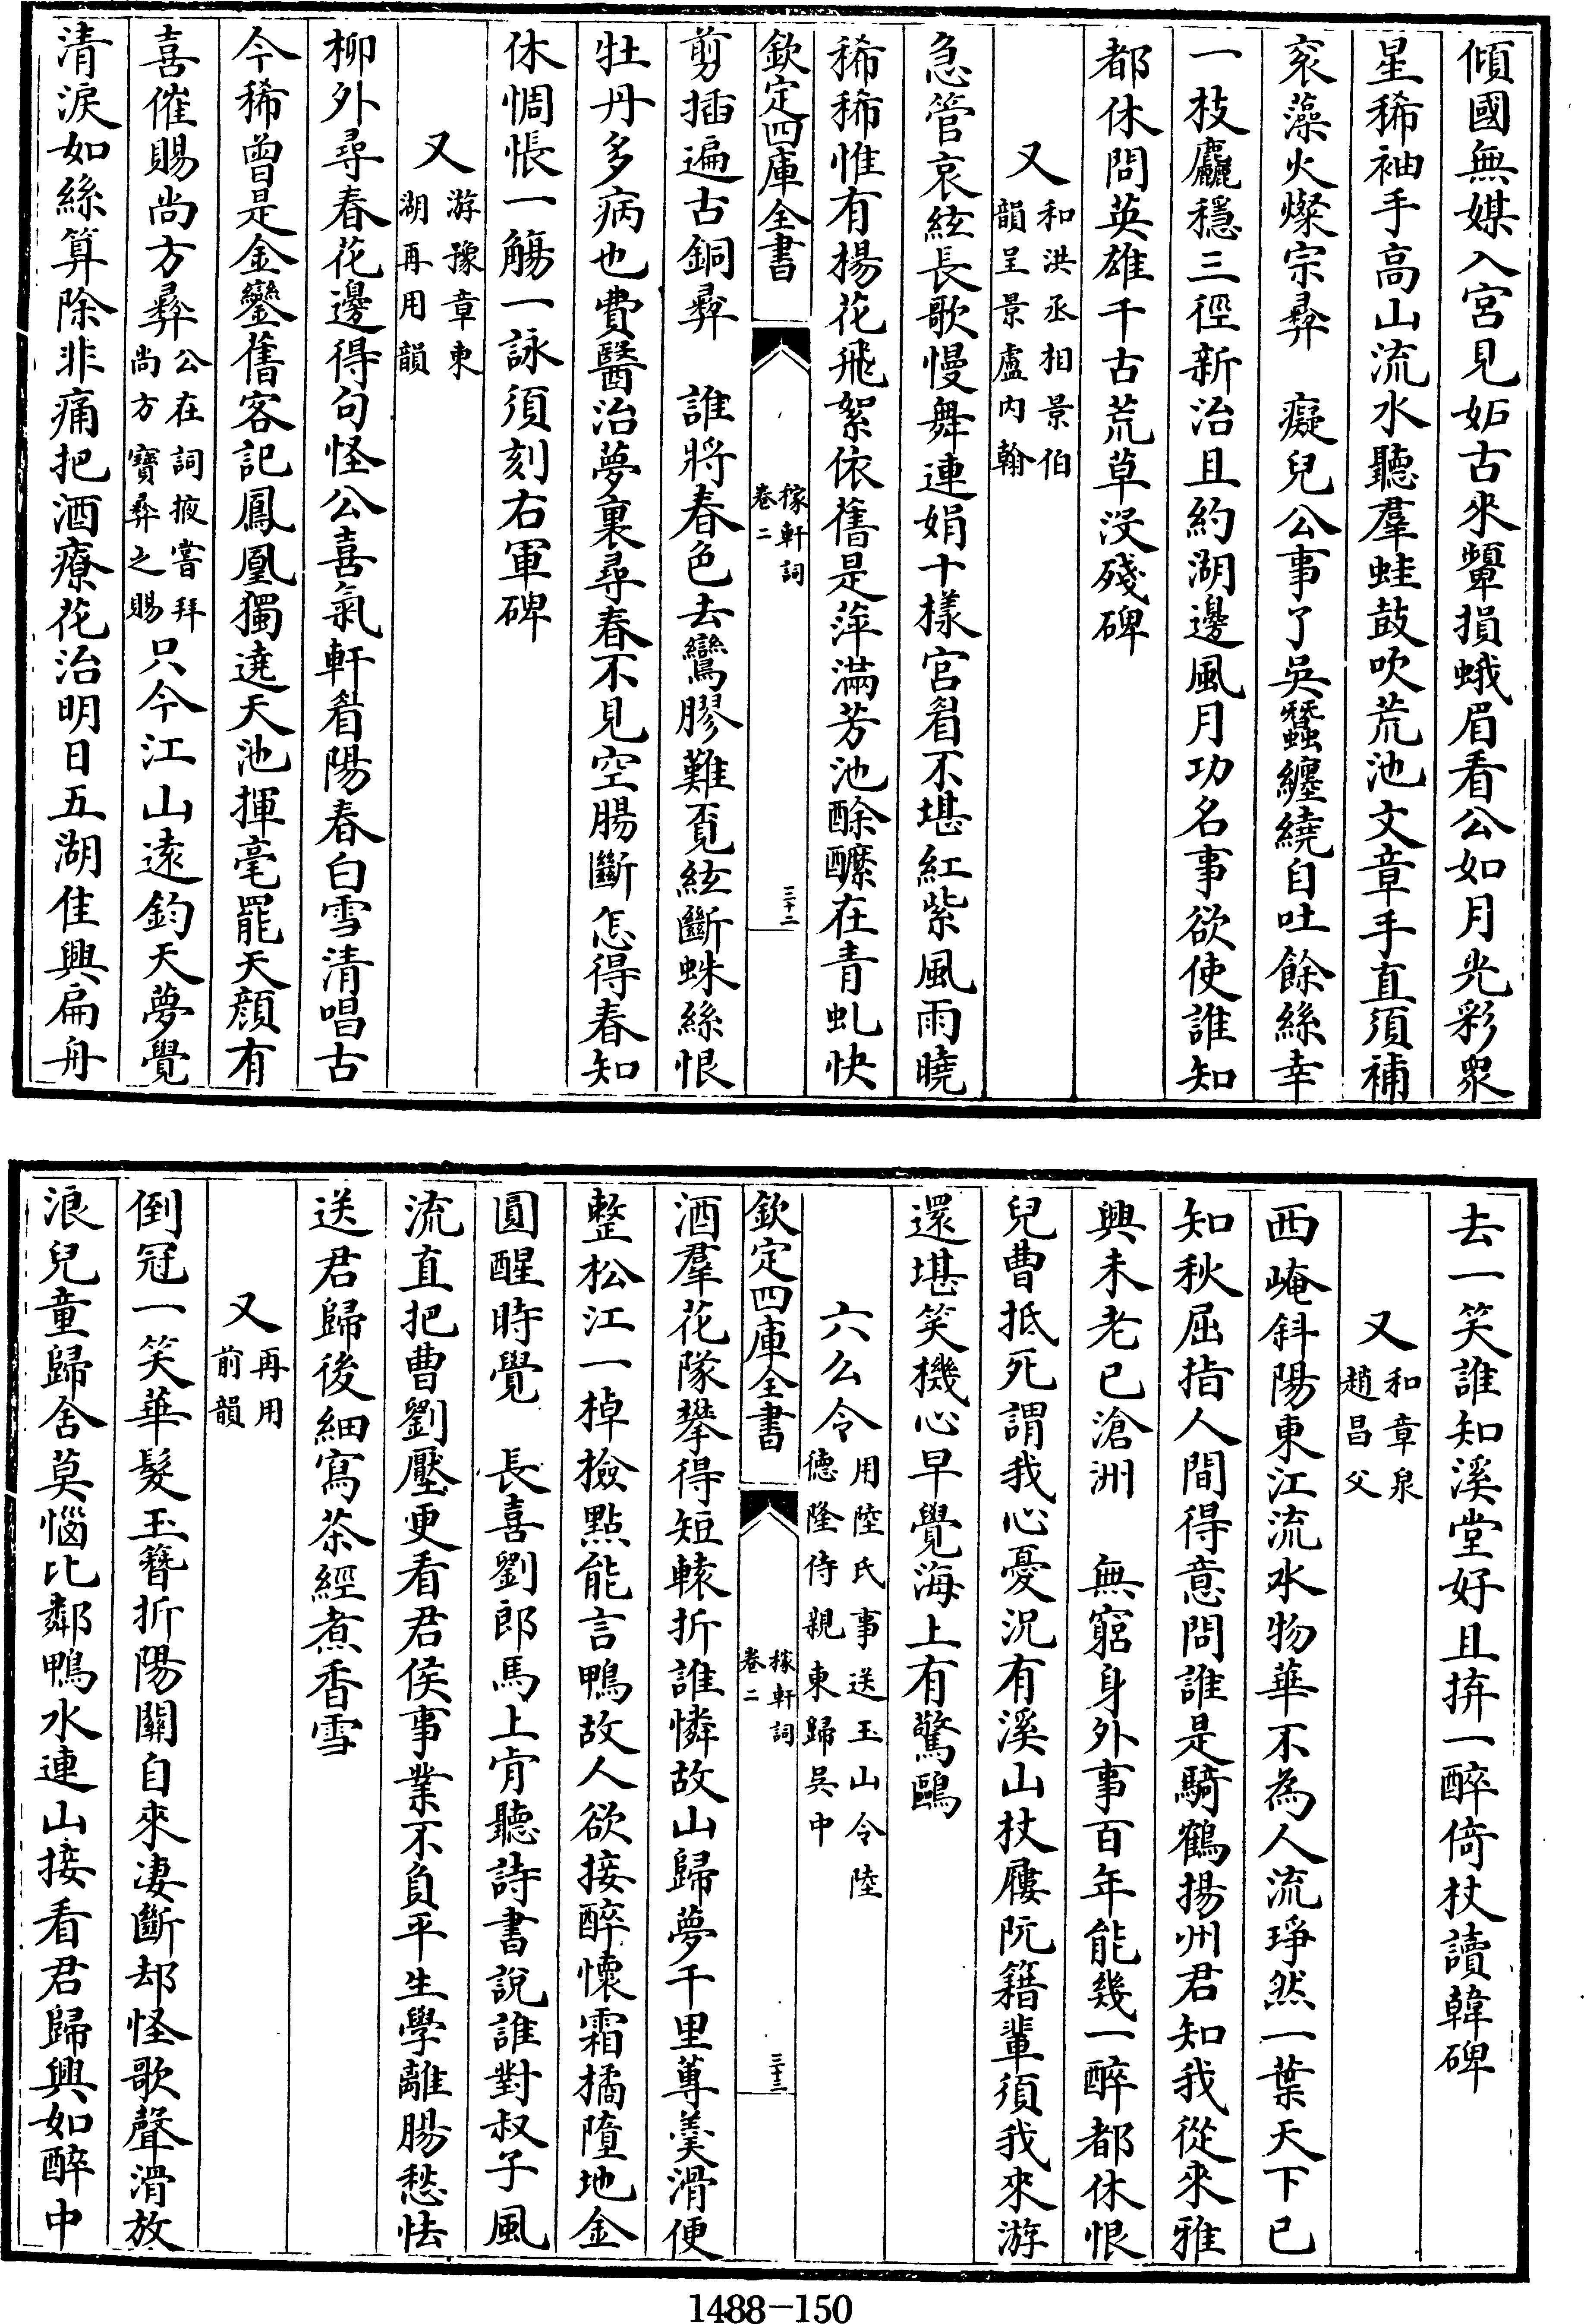 傾國無媒入宮見妬古來顰損蛾眉看公如月光彩衆
星稀袖手高山流水聽羣蛙鼓吹荒池文章手直須補
衮藻火燦宗彞　癡兒公事了吳蠶纏繞自吐餘絲幸
一枝麤穩三徑新治且約湖邊風月功名事欲使誰知
都休問英雄千古荒草沒殘碑
又和洪丞相景伯
韻呈景盧內翰
急管哀絃長歌慢舞連娟十樣宮眉不堪紅紫風雨曉
稀稀惟有楊花飛絮依舊是萍滿芳池酴醿在青虬快
欽定四庫全書
稼軒詞
卷二
三十二
剪插遍古銅彞　誰將春色去鸞膠難覓絃斷蛛絲恨
牡丹多病也費醫治夢裏尋春不見空腸斷怎得春知
休惆悵一觴一詠須刻右軍碑
又游豫章東
湖再用韻
柳外尋春花邊得句怪公喜氣軒眉陽春白雪清唱古
今稀曾是金鑾舊客記鳳凰獨遶天池揮毫罷天顏有
喜催賜尚方彞公在詞掖嘗拜
尚方寶彞之賜只今江山遠鈞天夢覺
清淚如絲算除非痛把酒療花治明日五湖佳興扁舟
去一笑誰知溪堂好且拚一醉倚杖讀韓碑
又和章泉
趙昌父
西崦斜陽東江流水物華不為人流琤然一葉天下已
知秋屈指人間得意問誰是騎鶴揚州君知我從來雅
興未老已滄洲　無窮身外事百年能幾一醉都休恨
兒曹抵死謂我心憂況有溪山杖屨阮籍輩須我來游
還堪笑機心早覺海上有驚鷗
六么令用陸氏事送玉山令陸
德隆侍親東歸吳中
欽定四庫全書
稼軒詞
卷二
三十三
酒羣花隊攀得短轅折誰憐故山歸夢千里蓴羹滑便
整松江一棹檢點能言鴨故人欲接醉懷霜橘墮地金
圓醒時覺　長喜劉郎馬上肯聽詩書說誰對叔子風
流直把曹劉壓更看君侯事業不負平生學離腸愁怯
送君歸後細寫茶經煮香雪
又再用
前韻
倒冠一笑華髮玉簪折陽關自來凄斷却怪歌聲滑放
浪兒童歸舍莫惱比鄰鴨水連山接看君歸興如醉中
1488-150